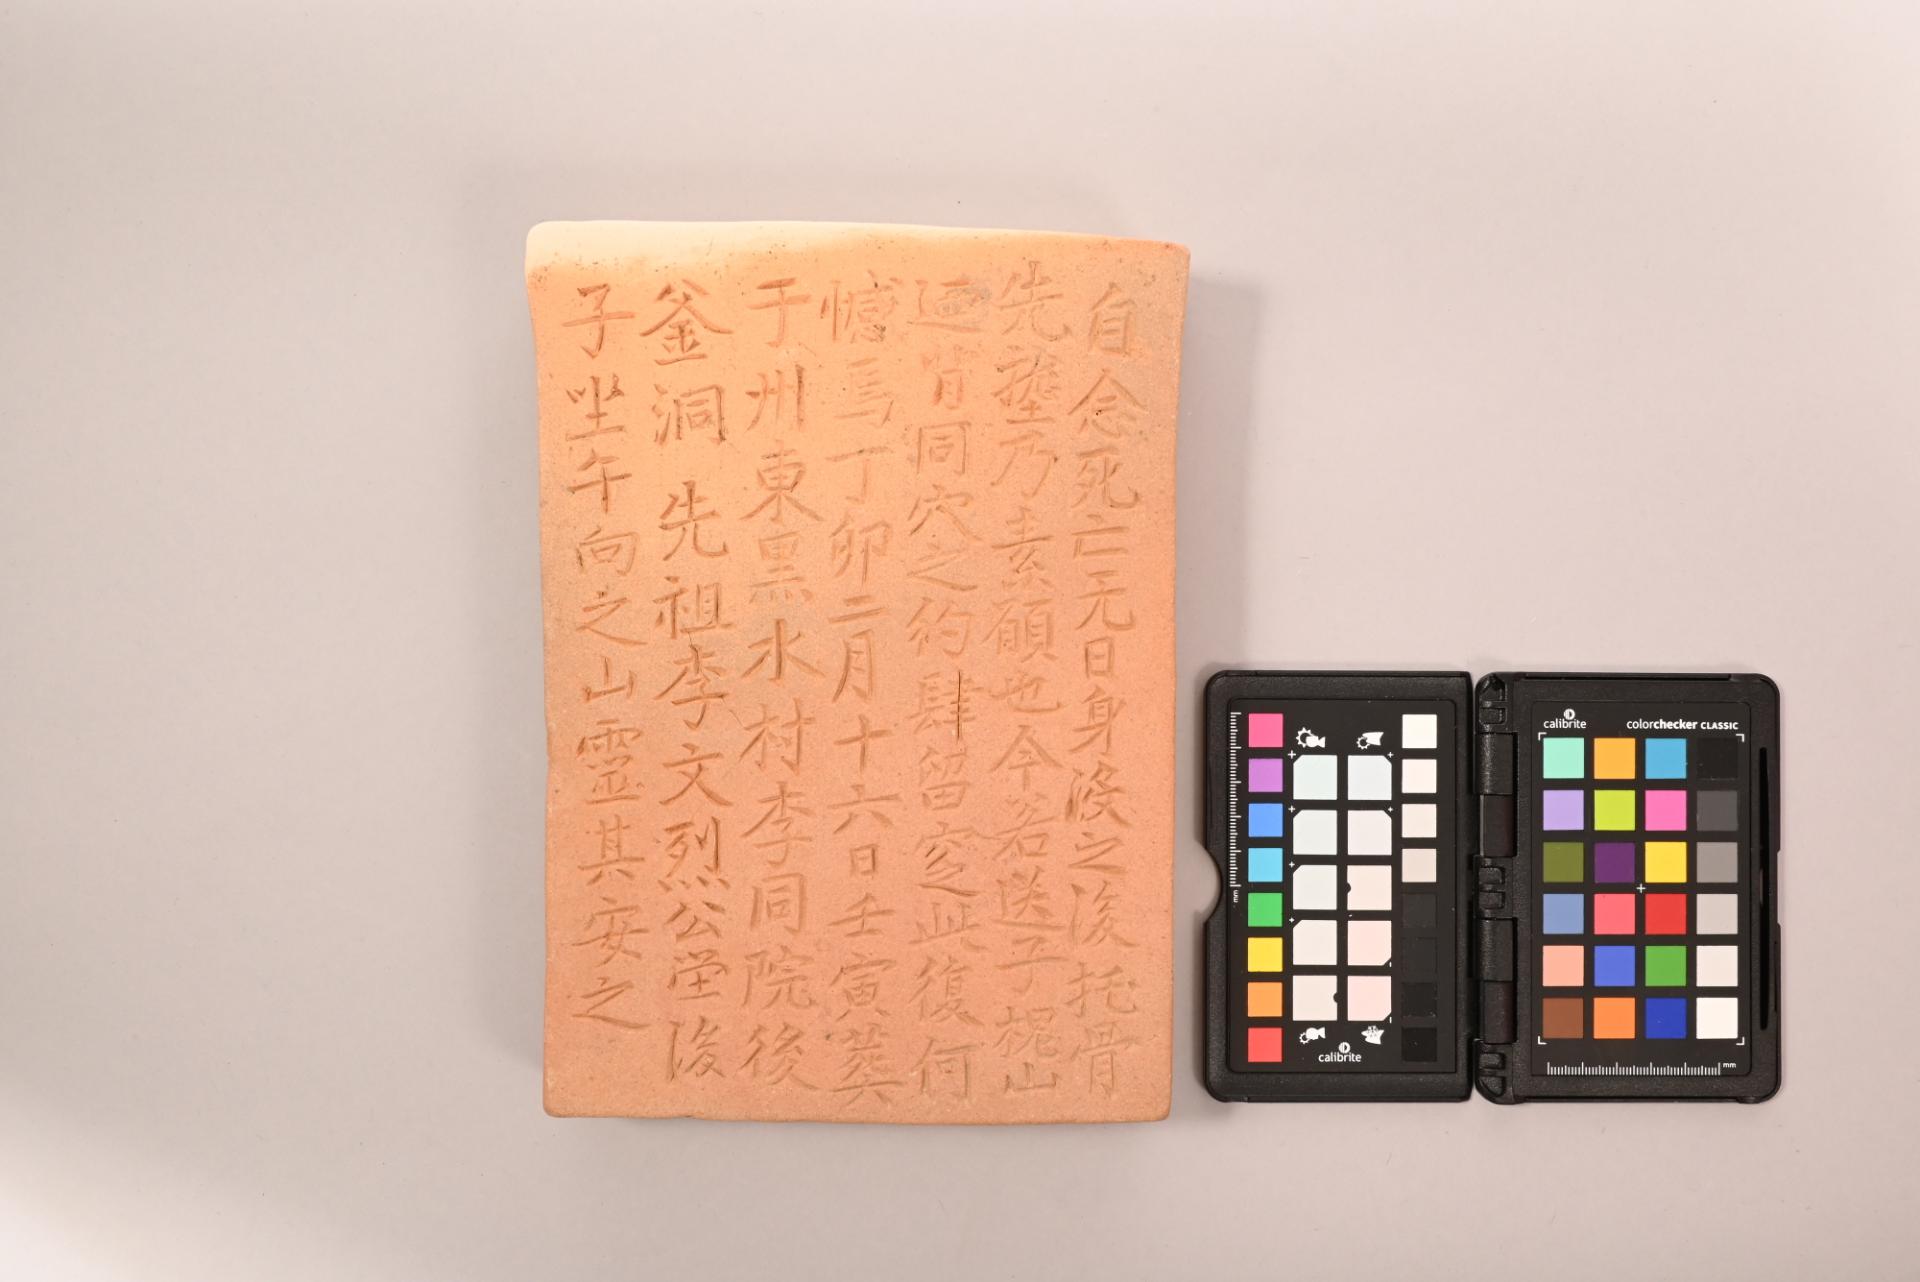 自念死亡无日身沒之後托骨
先壠乃素願也今若送子槐山
迺背同穴之約肆留窆此復何
憾焉丁卯二月十六日壬寅葬
于州東黑水村李同院後
釜洞 先祖李文烈公塋後
子坐午向之山靈其安之
mm
calibrite
calibrite
colorchecker CLASSIC
mm